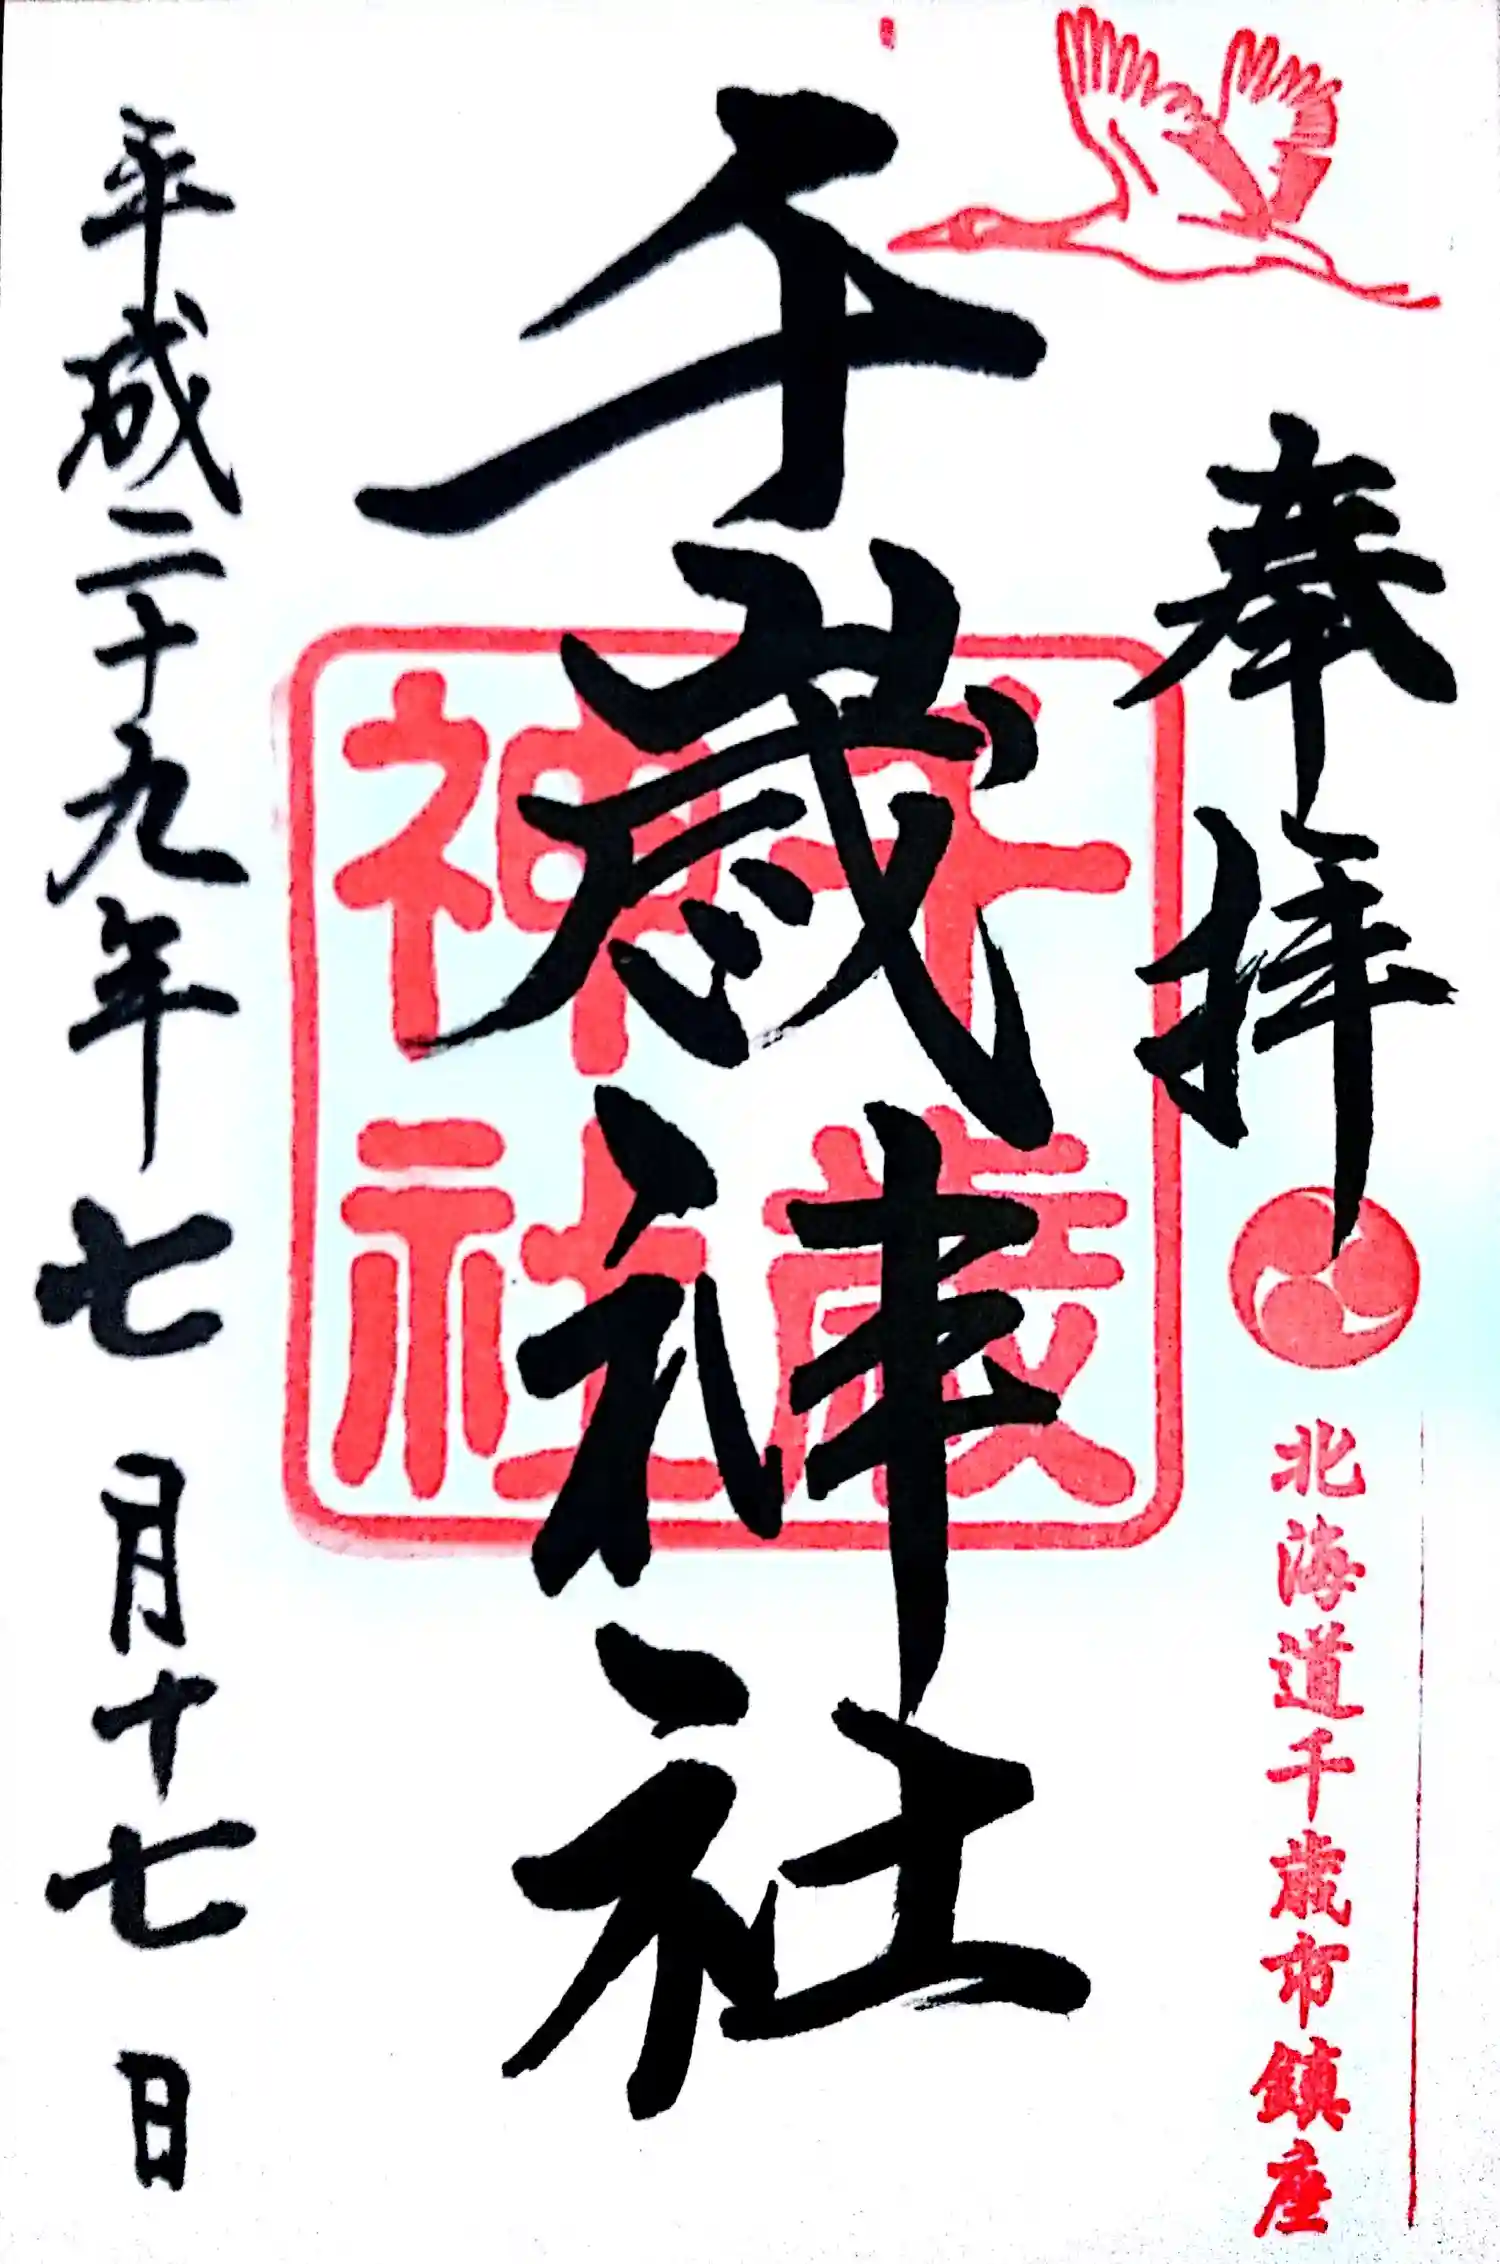 奉拝
北海道千歳市鎮座
千歳神社
千歳
神社
平成二十九年七月十七日